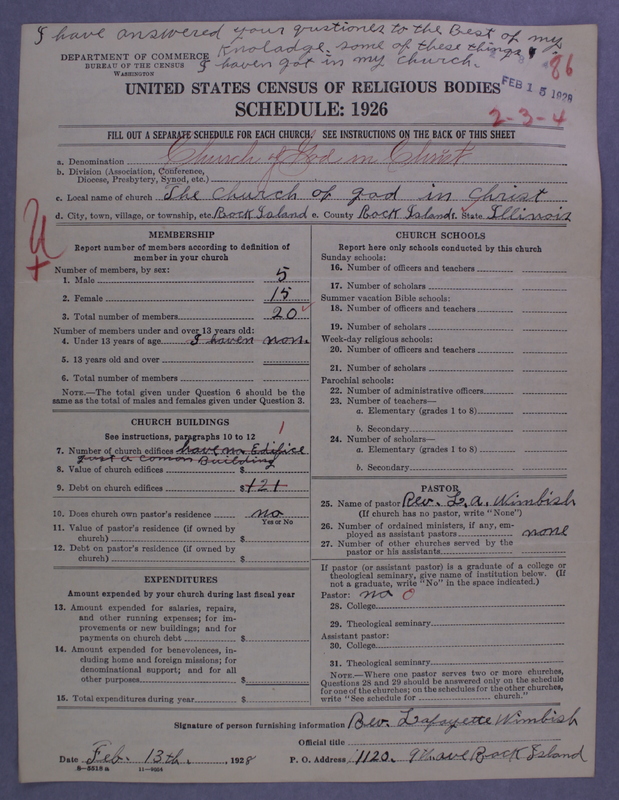 I have answered your qustiones to the Best of my
Knoladge. some of these things
I haven got in my church.
86
DEPARTMENT OF COMMERCE
BUREAU OF THE CENSUS
WASHINGTON
FEB 15 1928
UNITED STATES CENSUS OF RELIGIOUS BODIES
SCHEDULE: 1926
2-3-4
FILL OUT A SEPARATE SCHEDULE FOR EACH CHURCH. SEE INSTRUCTIONS ON THE BACK OF THIS SHEET
a. Denomination Church of God in Christ
b. Division (Association, Conference,
Diocese, Presbytery, Synod, etc.)
c. Local name of church The church of god in christ
d. City, town, village, or township, etc. Rock Island e. County Rock Island f. State Illinois
MEMBERSHIP
Report number of members according to definition of
member in your church
Number of members, by sex:
1. Male 5
2. Female 15
3. Total number of members 20
Number of members under and over 13 years old:
4. Under 13 years of age I haven non
5. 13 years old and over
6. Total number of members
NOTE.—The total given under Question 6 should be the
same as the total of males and females given under Question 3.
CHURCH BUILDINGS
See instructions, paragraphs 10 to 12
1
7. Number of church edifices have no Edifice
Just a coman Building
8. Value of church edifices $
9. Debt on church edifices $121
10. Does church own pastor's residence no
Yes or No
11. Value of pastor's residence (if owned by
church) $
12. Debt on pastor's residence (if owned by
church) $
EXPENDITURES
Amount expended by your church during last fiscal year
13. Amount expended for salaries, repairs,
and other running expenses; for im-
provements or new buildings; and for
payments on church debt $
14. Amount expended for benevolences, in-
cluding home and foreign missions; for
denominational support; and for all
other purposes $
15. Total expenditures during year $
CHURCH SCHOOLS
Report here only schools conducted by this church
Sunday schools:
16. Number of officers and teachers
17. Number of scholars
Summer vacation Bible schools:
18. Number of officers and teachers
19. Number of scholars
Week-day religious schools:
20. Number of officers and teachers
21. Number of scholars
Parochial schools:
22. Number of administrative officers
23. Number of teachers—
a. Elementary (grades 1 to 8)
b. Secondary
24. Number of scholars—
a. Elementary (grades 1 to 8)
b. Secondary
PASTOR
25. Name of pastor Rev. L. a. Wimbish
(If church has no pastor, write "None")
26. Number of ordained ministers, if any, em-
ployed as assistant pastors none
27. Number of other churches served by the
pastor or his assistants
If pastor (or assistant pastor) is a graduate of a college or
theological seminary, give name of institution below. (If
not a graduate, write "No" in the space indicated.)
Pastor: no 0
28. College
29. Theological seminary
Assistant pastor:
30. College
31. Theological seminary
NOTE.—Where one pastor serves two or more churches,
Questions 28 and 29 should be answered only on the schedule
for one of the churches; on the schedules for the other churches,
write "See schedule for church."
Signature of person furnishing information Rev. Lafayette Wimbish
Official title
Date Feb. 13th, 1928 P. O. Address 1120. 9th ave Rock Island
8-5518a 11-9024